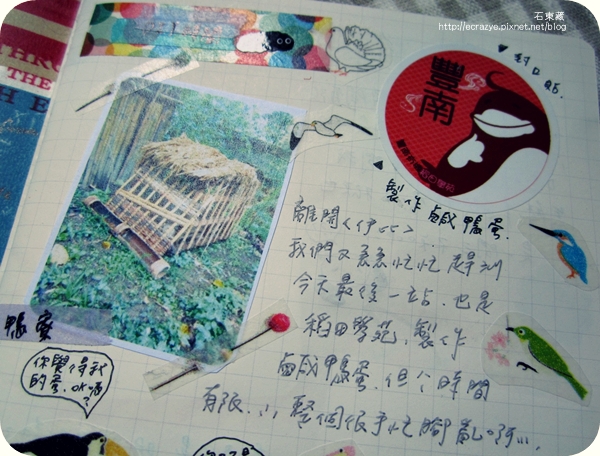 石東藏
http://ecrazye.pixnet.net/blog
THRO
THE
H E
▼封口貼.
豐南
▲製作鹹鴨蛋.
離開<伊比>
我們又急急忙忙趕到
今天最後一站.也是
稻田學苑.製作
鹹鴨蛋.但个時間
有限.⺌整個很手忙腳亂啊⺌
鴨寮
你覺得我
的蛋.OK嗎
?